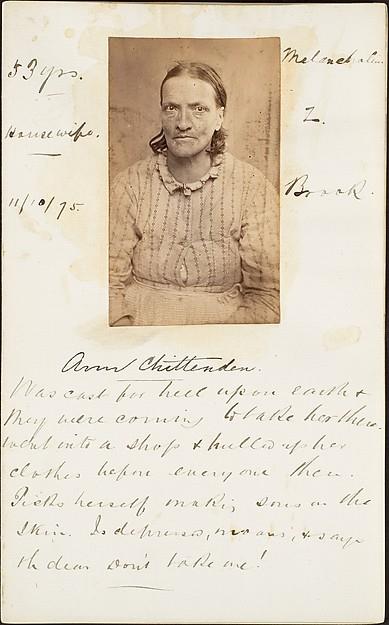 53 yrs.
Housewife.
11/10/75.
Melancholia.
2.
Brook.
Ann Chittenden.
Was cast for hell upon earth &
they were coming to take her there.
Went into a shop & pulled up her
clothes before everyone there.
Picks herself making sores on the
skin. Is depressed, moans, & says
oh dear Don't take me!